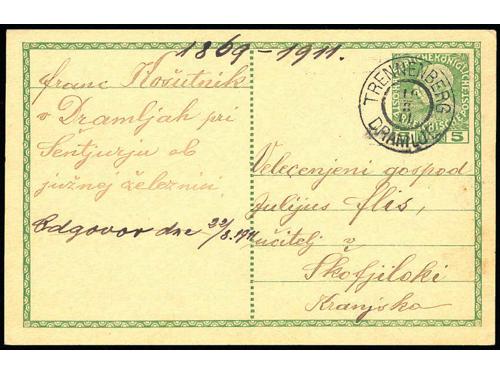 1869-1911.
Franc Košutnik
v Dramljah pri
Šentjurju ob
južnej železnici
Odgovor dne 22/8. 1911
TRENNENBERG
DRAMLJE
5
Velecenjeni gospod
Julijus Flis,
učitelj v
Škofjiloki
Kranjsko